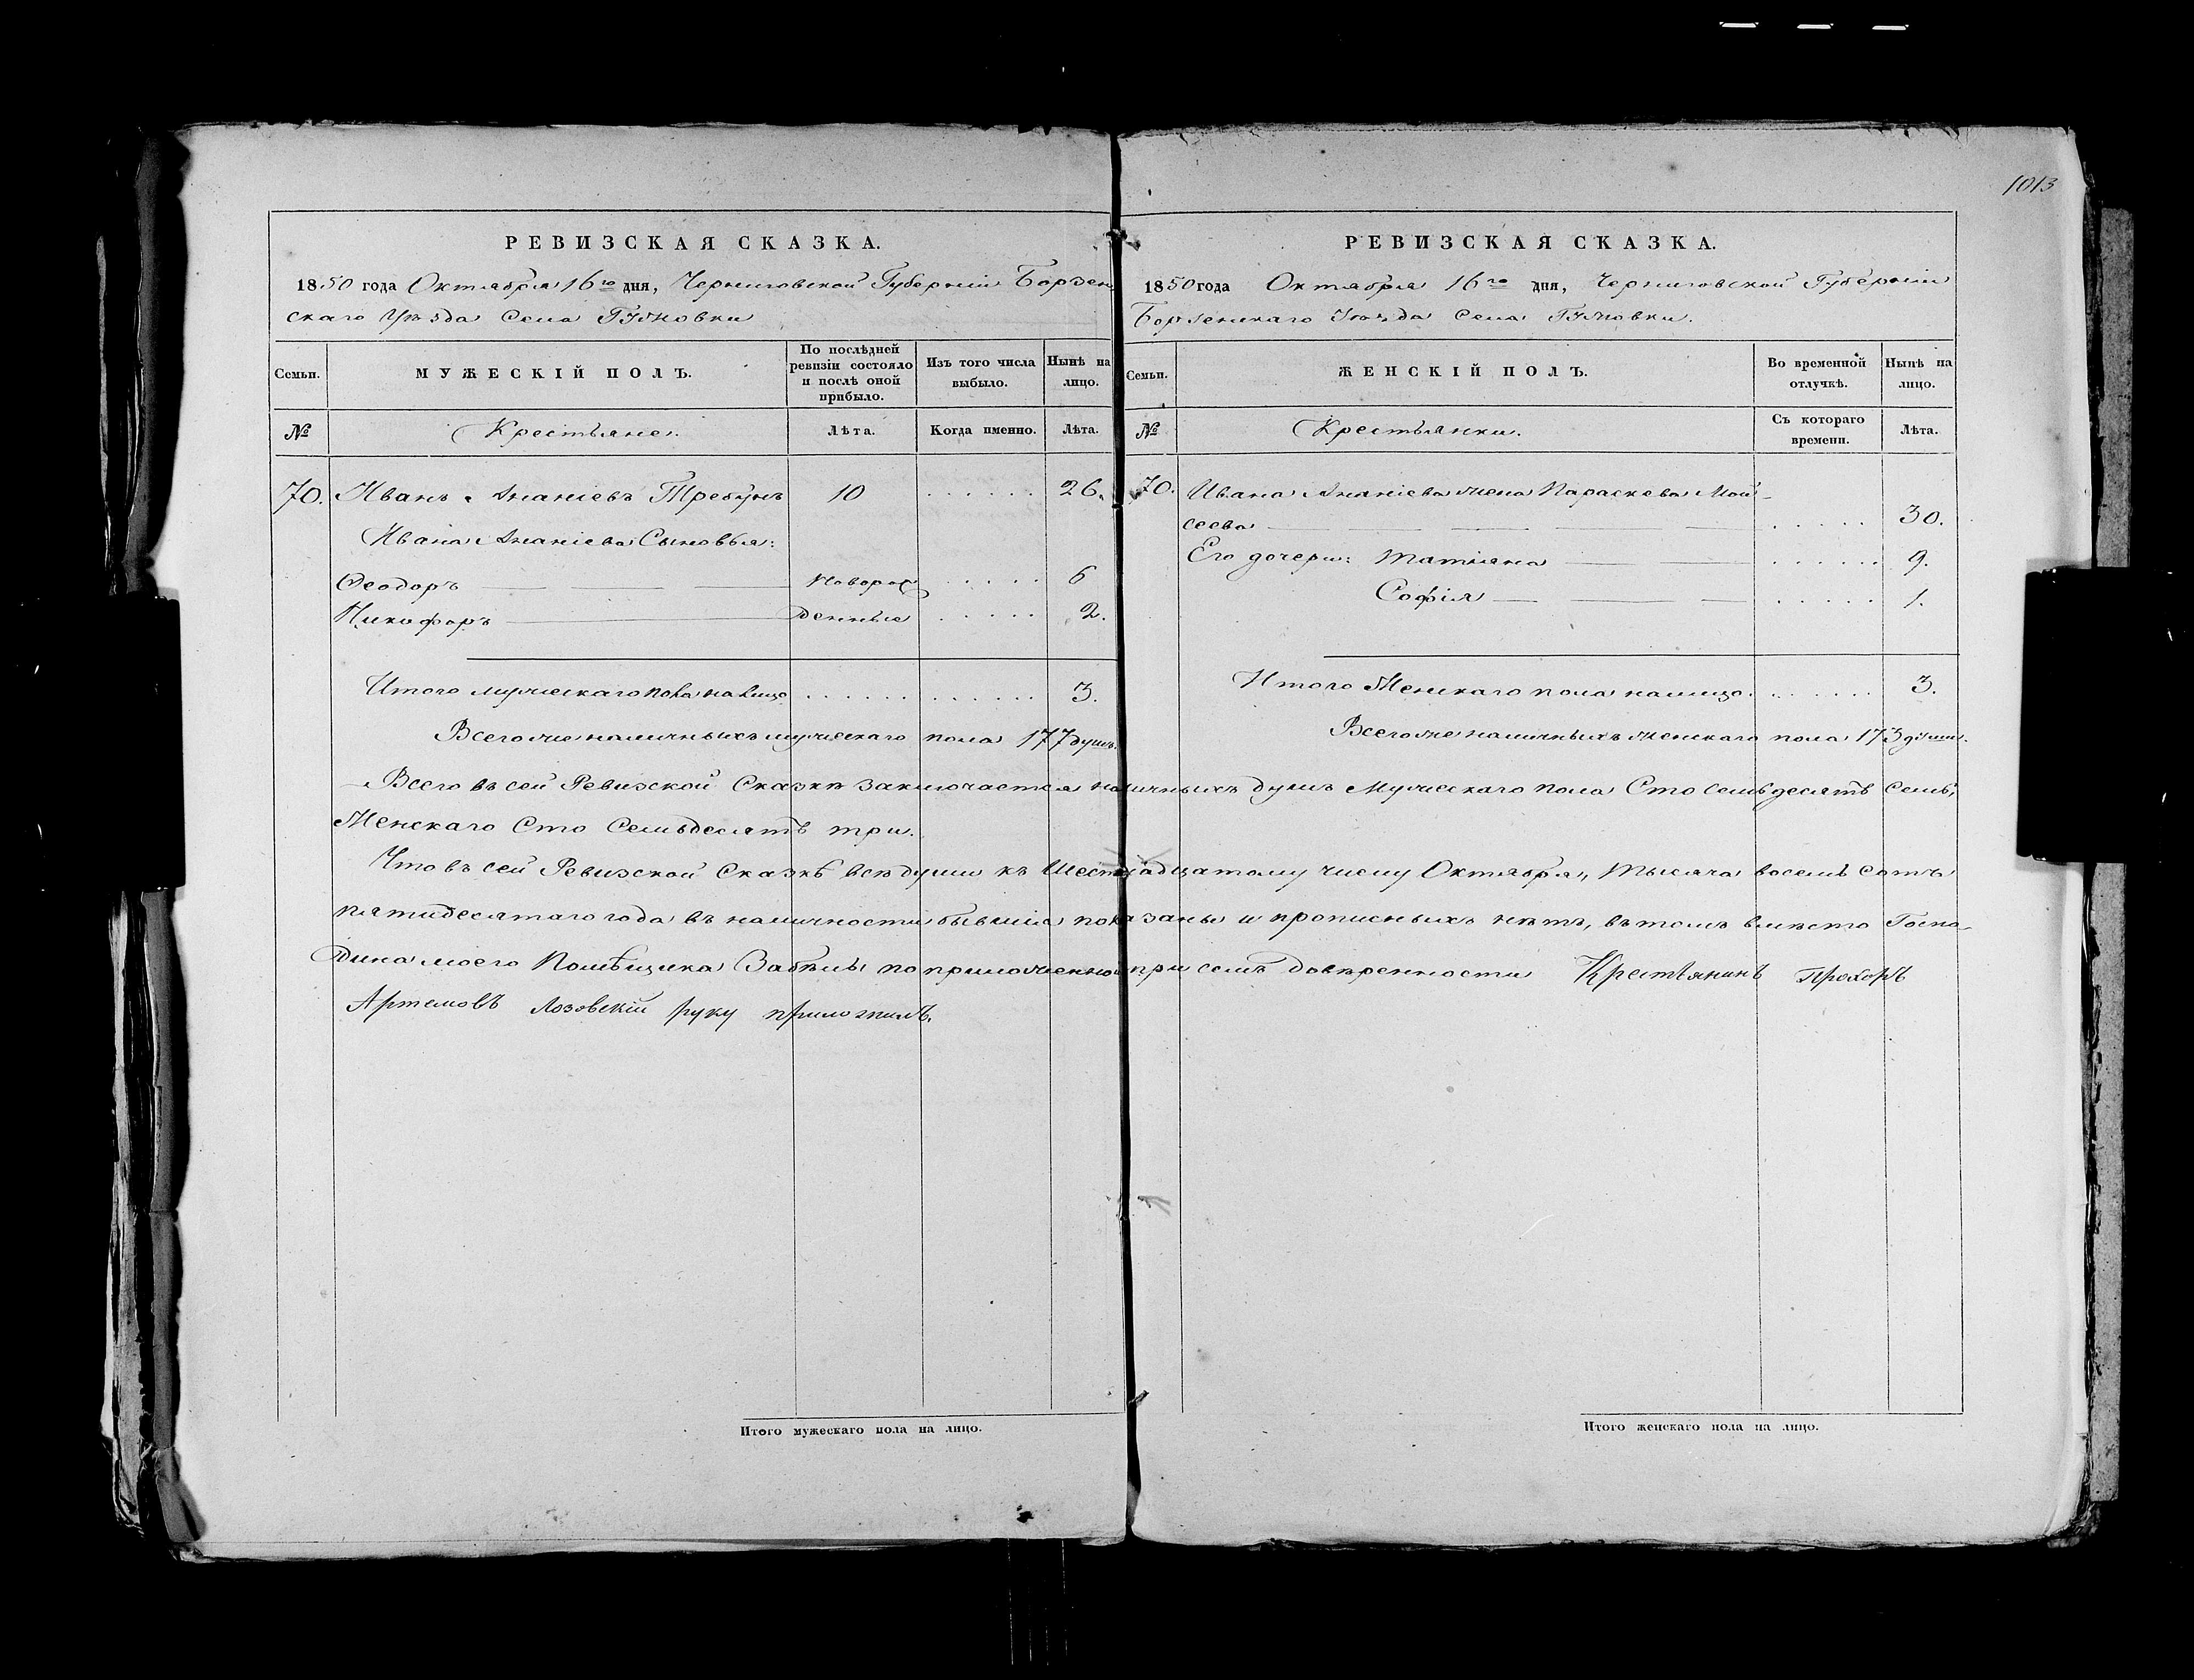 1013
РЕВИЗСКАЯ СКАЗКА.
1850 года Октября 16го дня, Черниговской Губерніи Борзен
скаго Уѣзда Села
Семьи.
МУЖЕСКІЙ ПОЛЪ.
По послѣдней
ревизіи состояло
и послѣ оной
прибыло.
Изъ того числа
выбыло.
Нынѣ на
лицо.
№
Крестьяне.
Лѣта.
Когда именно.
Лѣта.
70. Иванъ Ананіевъ Требунъ 10 . . . . . . 26.
Ивана Ананіева Сыновья:
Феодоръ Новорож . . . . . 6
Никифоръ денные . . . . . 2.
Итого мужескаго пола налицо . . . . . . . . . . . . 3.
Всего же наличныхъ мужескаго пола 177 душъ.
РЕВИЗСКАЯ СКАЗКА.
1850 года Октября 16го дня, Черниговской Губерніи
Борзенскаго Уѣзда Села
Семьи.
ЖЕНСКІЙ ПОЛЪ.
Во временной
отлучкѣ.
Нынѣ на
лицо.
№
Крестьянки.
Съ котораго
времени.
Лѣта.
70. Ивана Ананіева жена Параскева Мой-
сеева . . . . . 30.
Его дочери: Татіяна . . . . . . 9.
Софія . . . . . 1.
Итого Женскаго пола налицо . . . . . . 3.
Всего же наличныхъ женскаго пола 173 души.
Всего въ сей Ревизской Сказкѣ заключается наличныхъ душъ Мужескаго пола Сто семьдесятъ семь,
Женскаго Сто Семьдесятъ три.
Что въ сей Ревизской Сказкѣ всѣ души къ Шестнадцатому числу Октября, тысяча восемь сотъ
пятидесятаго года въ наличности бывшія показаны и прописныхъ нѣтъ, въ томъ вмѣсто Госпо-
дина моего Помѣщика Забѣлы по приложенной при семъ довѣренности Крестьянинъ Прохоръ
Артемовъ Лозовскій руку приложилъ.
Итого мужескаго пола на лицо.
Итого женскаго пола на лицо.